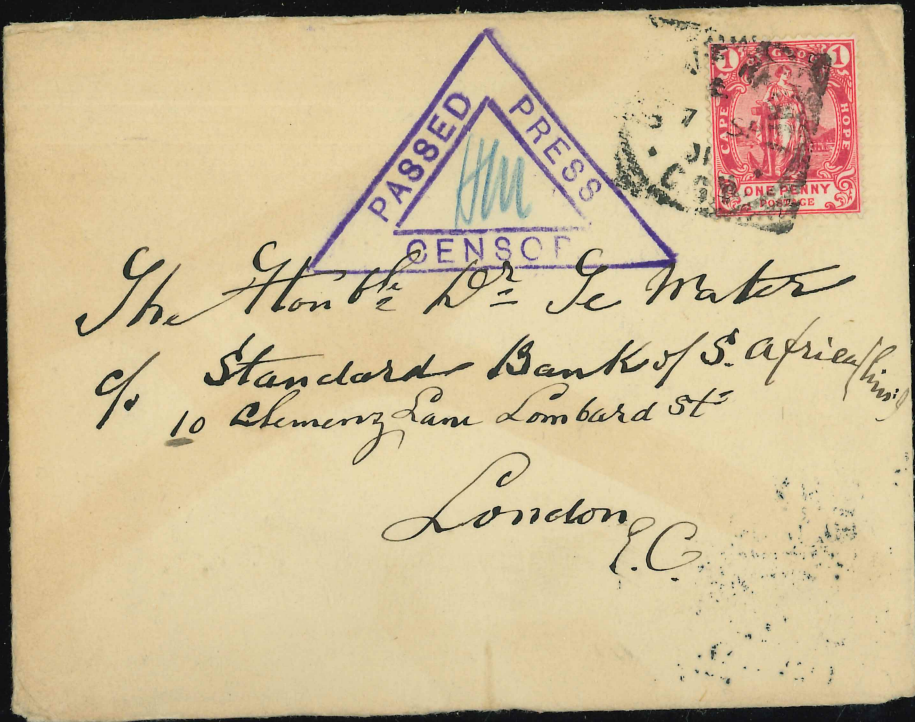 PASSED PRESS CENSOR
1 CAPE OF GOOD HOPE 1
ONE PENNY
POSTAGE
The Honble Dr Te Water
c/o Standard Bank of S. Africa
10 Clemenz Lane Lombard St
London
E.C.